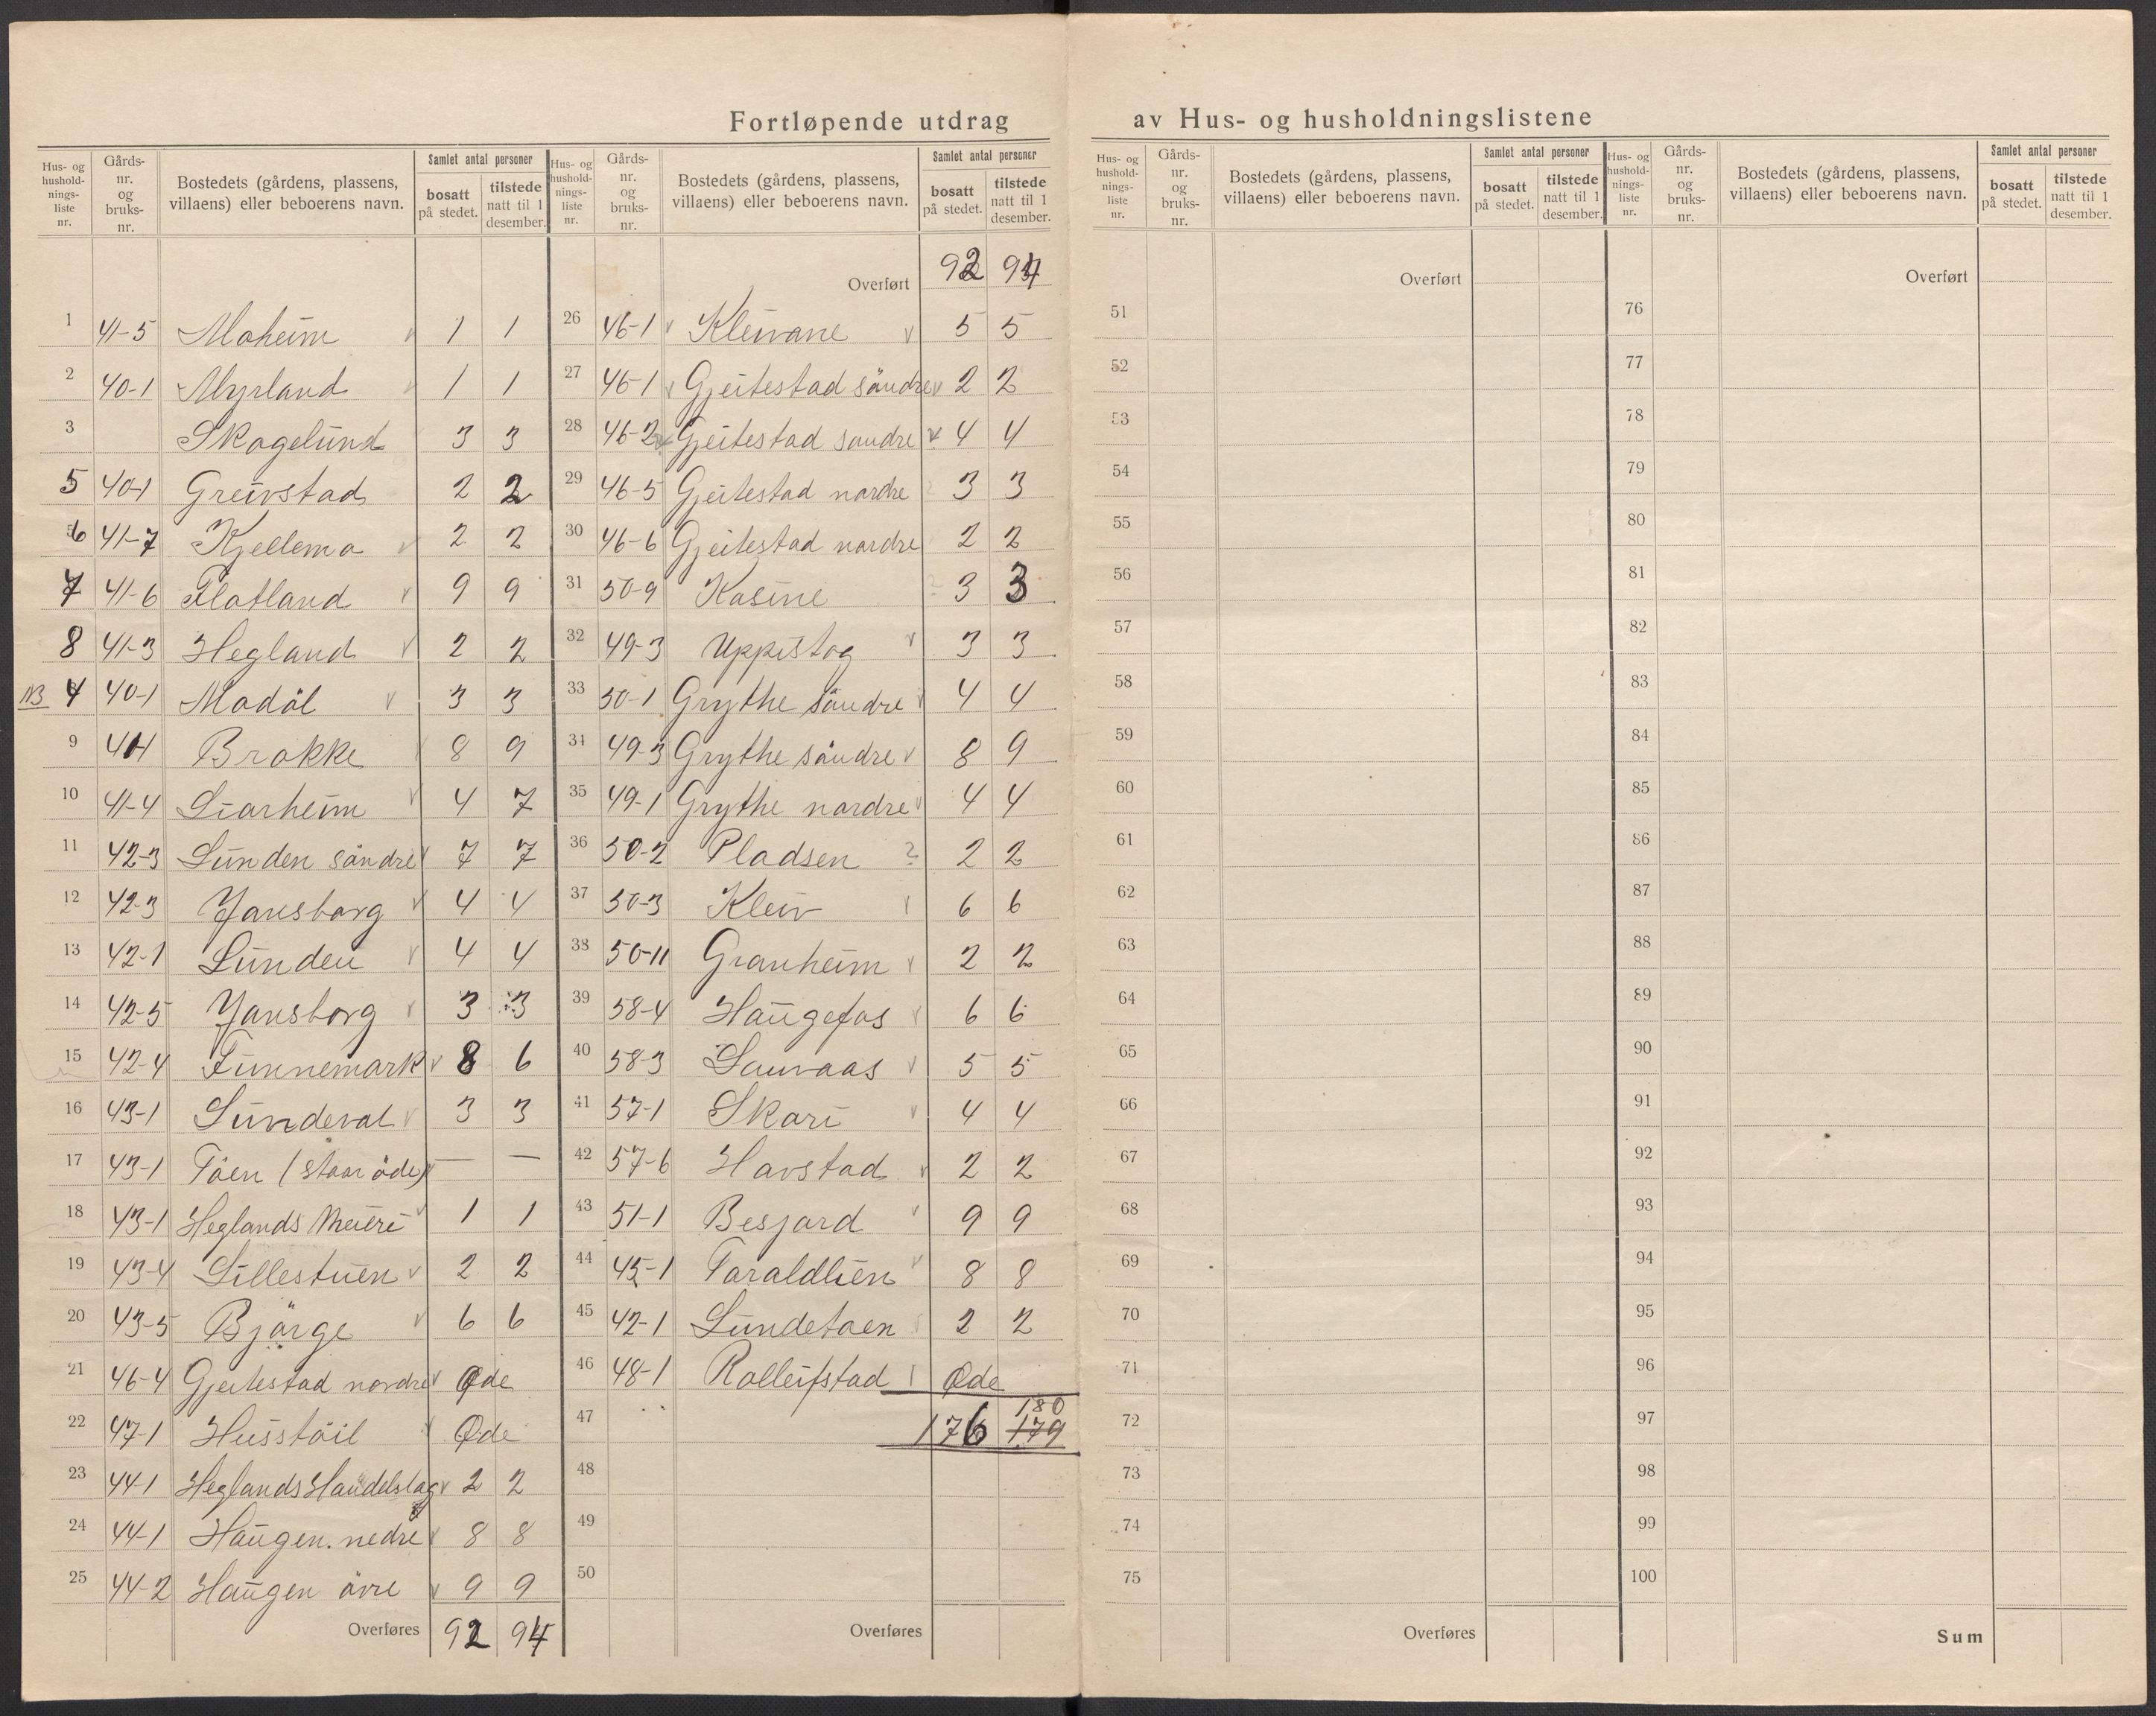 Fortløpende utdrag av Hus- og husholdningslistene
Hus- og husholdningsliste nr. | Gårds-nr. og bruks-nr. | Bostedets (gårdens, plassens, villaens) eller beboerens navn. | Samlet antal personer | bosatt på stedet. | tilstede natt til 1 desember.
1 41-5 Moheim v 1 1
2 40-1 Myrland v 1 1
3 Skogelund 3 3
5 40-1 Greivstad 2 2
6 41-7 Kjellemo v 2 2
7 41-6 Flatland v 9 9
8 41-3 Hegland v 2 2
NB 4 40-1 Modöl v 3 3
9 41-1 Brokke v 8 9
10 41-4 Liarheim v 4 7
11 42-3 Lunden söndre v 7 7
12 42-3 Jansborg v 4 4
13 42-1 Lunden v 4 4
14 42-5 Jansborg v 3 3
15 42-4 Funnemark v 8 6
16 43-1 Lundeval v 3 3
17 43-1 Töen (staar öde) v — —
18 43-1 Heglands Meieri v 1 1
19 43-4 Lillestuen v 2 2
20 43-5 Björge v 6 6
21 46-4 Gjeitestad nordre v Øde
22 47-1 Husstöil v Øde
23 44-1 Heglands Handelslag v 2 2
24 44-1 Haugen nedre v 8 8
25 44-2 Haugen övre v 9 9
Overføres 92 94
Hus- og husholdningsliste nr. | Gårds-nr. og bruks-nr. | Bostedets (gårdens, plassens, villaens) eller beboerens navn. | Samlet antal personer | bosatt på stedet. | tilstede natt til 1 desember.
Overført 92 94
26 46-1 v Kleivane v 5 5
27 46-1 v Gjeitestad söndre v 2 2
28 46-2 v Gjeitestad söndre v 4 4
29 46-5 Gjeitestad nordre ? 3 3
30 46-6 Gjeitestad nordre 2 2
31 50-9 Kasine ? 3 3
32 49-3 Uppistog v 3 3
33 50-1 Grythe söndre v 4 4
34 49-3 Grythe söndre v 8 9
35 49-1 Grythe nordre v 4 4
36 50-2 Pladsen ? 2 2
37 50-3 Kleiv v 6 6
38 50-11 Granheim v 2 2
39 58-4 Haugefos v 6 6
40 58-3 Sauvaas v 5 5
41 57-1 Skari v 4 4
42 57-6 Havstad v 2 2
43 51-1 Besjord v 9 9
44 45-1 Taraldlien v 8 8
45 42-1 Lundetoen v 2 2
46 48-1 Rolleifstad v Øde
180
47 176 179
48
49
50
Overføres
Hus- og husholdningsliste nr. | Gårds-nr. og bruks-nr. | Bostedets (gårdens, plassens, villaens) eller beboerens navn. | Samlet antal personer | bosatt på stedet. | tilstede natt til 1 desember.
Overført
51
52
53
54
55
56
57
58
59
60
61
62
63
64
65
66
67
68
69
70
71
72
73
74
75
Overføres
Hus- og husholdningsliste nr. | Gårds-nr. og bruks-nr. | Bostedets (gårdens, plassens, villaens) eller beboerens navn. | Samlet antal personer | bosatt på stedet. | tilstede natt til 1 desember.
Overført
76
77
78
79
80
81
82
83
84
85
86
87
88
89
90
91
92
93
94
95
96
97
98
99
100
Sum